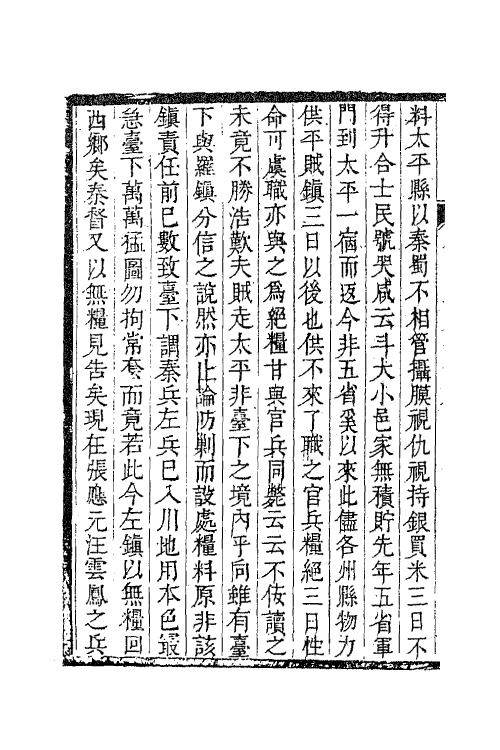 料太平縣以秦蜀不相管攝膜視仇視持銀買米三日不
得升合士民號哭咸云斗大小邑家無積貯先年五省軍
門到太平一宿而返今非五省奚以來此儘各州縣物力
供平賊鎮三日以後也供不來了職之官兵糧絕三日性
命可虞職亦與之爲絕糧甘與官兵同斃云云不佞讀之
未竟不勝浩歎夫賊走太平非臺下之境內乎向雖有臺
下與羅鎮分信之說然亦止論防剿而設處糧料原非該
鎮責任前已數致臺下謂秦兵左兵已入川地用本色最
急臺下萬萬猛圖勿拘常套而竟若此今左鎮以無糧回
西鄉矣秦督又以無糧見告矣現在張應元汪雲鳳之兵